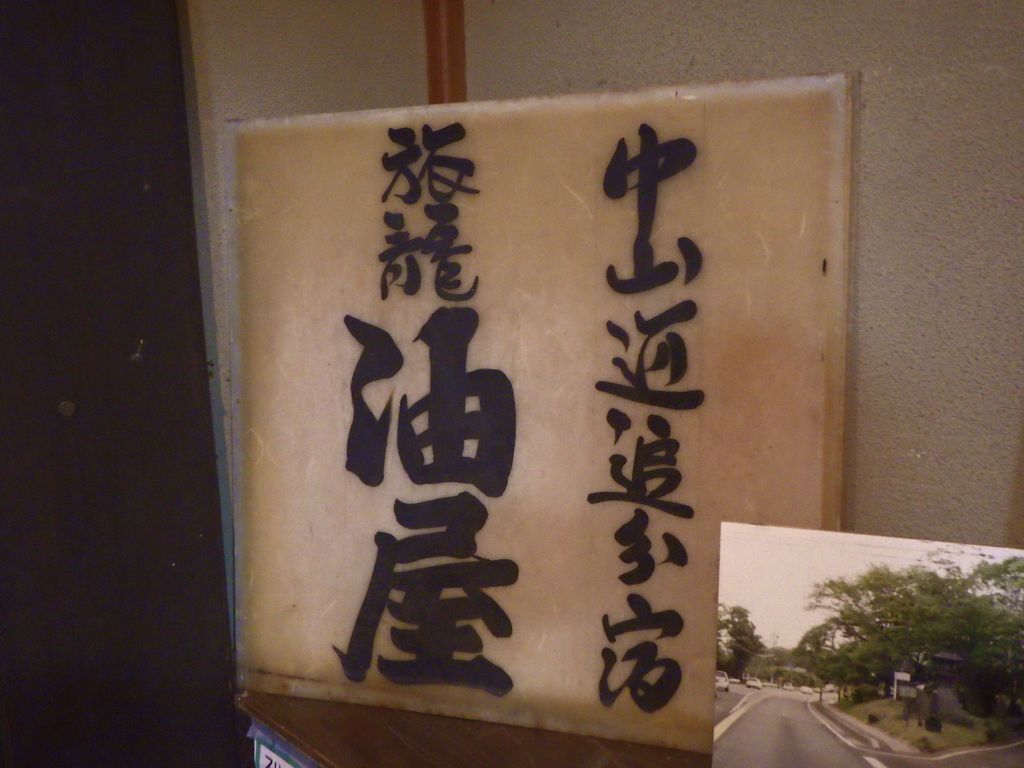 中山道追分宿
旅籠油屋